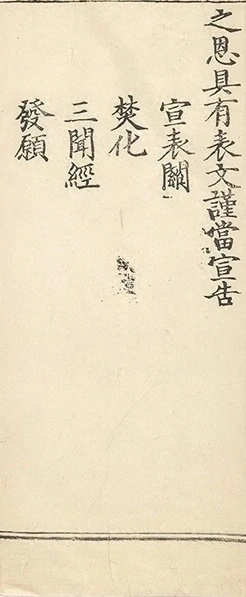 之恩具有表文謹當宣告
宣表關
焚化
三聞經
發願